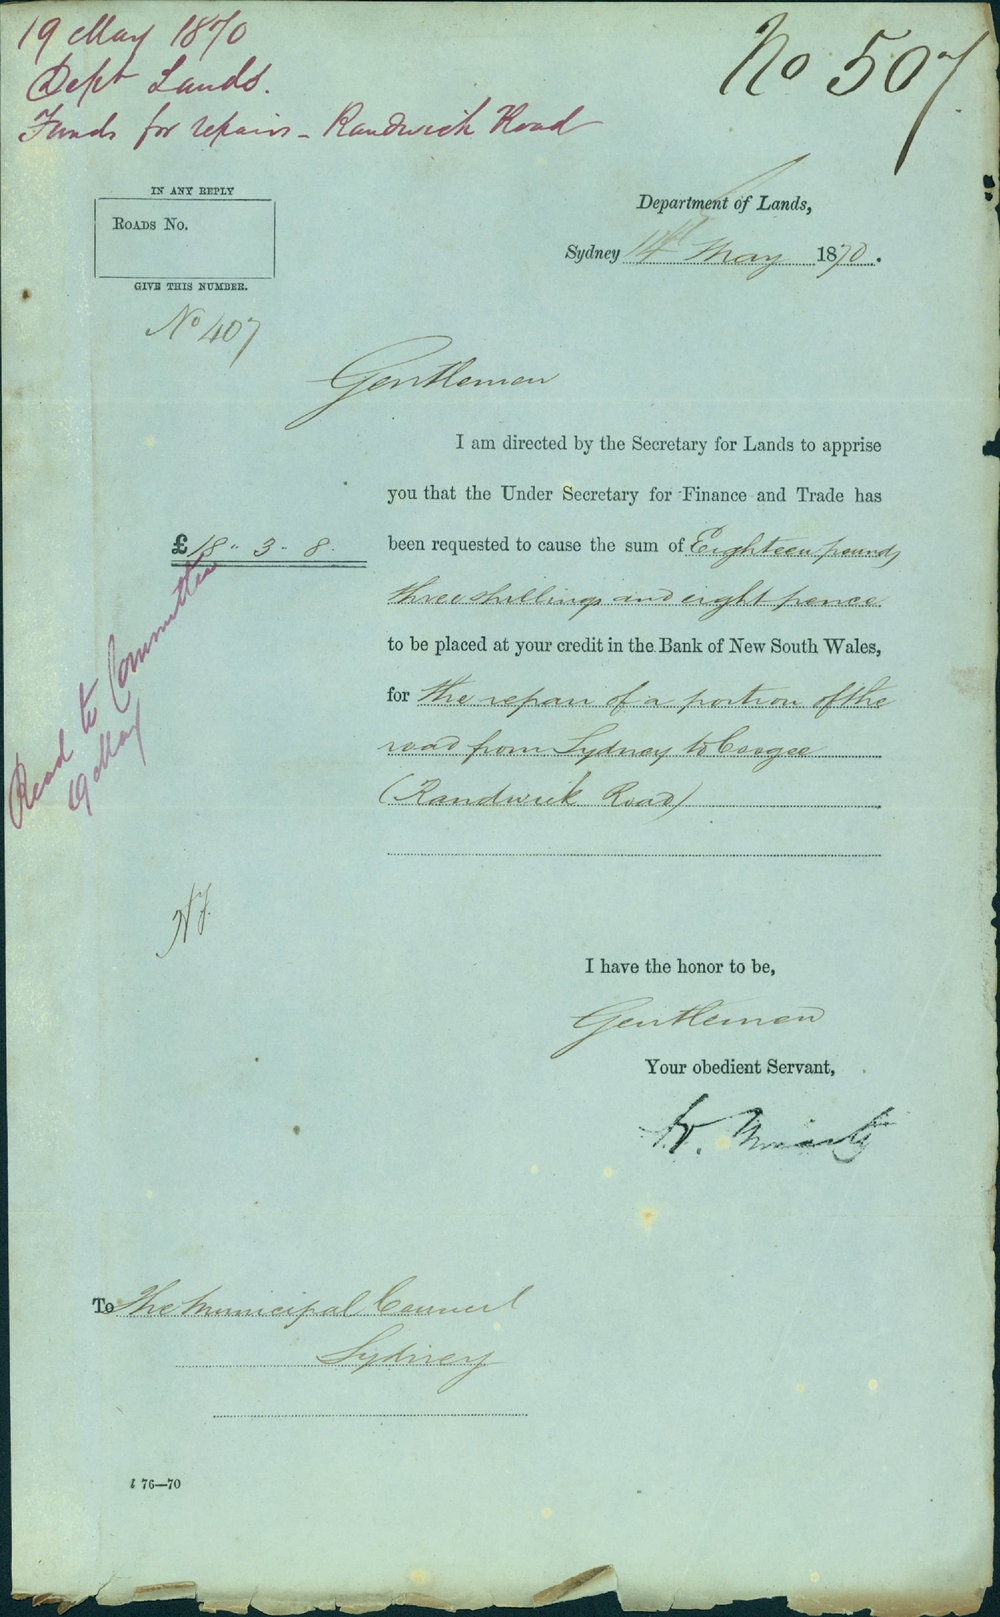 19 May 1870
Dept Lands.
Funds for repairs - Randwick Road
No 507
IN ANY REPLY
ROADS No.
GIVE THIS NUMBER.
No 407
Department of Lands,
Sydney 14th May 1870.
Gentlemen
I am directed by the Secretary for Lands to apprise
you that the Under Secretary for Finance and Trade has
£ 18 " 3 - 8.
been requested to cause the sum of Eighteen pounds
three shillings and eight pence
to be placed at your credit in the Bank of New South Wales,
for the repair of a portion of the
road from Sydney to Coogee
(Randwick Road)
Read to Committee
19 May
I have the honor to be,
Gentlemen
Your obedient Servant,
To The Municipal Council
Sydney
l 76—70